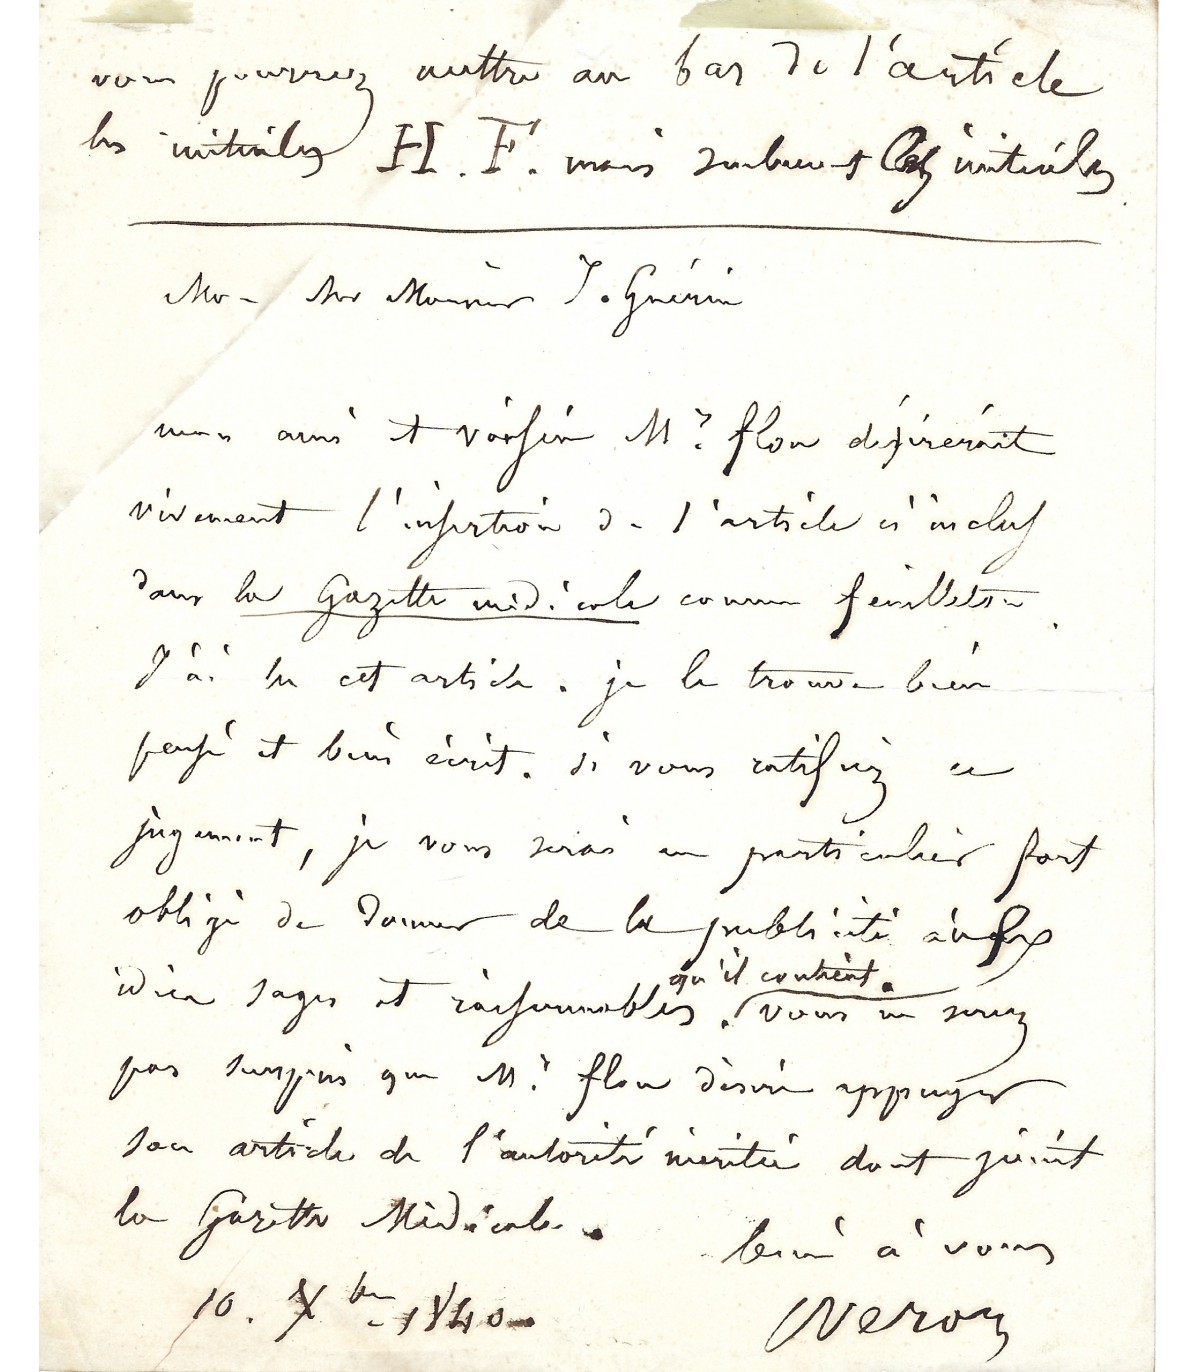 vous pourrez mettre au bas de l'article
les initiales H. F. mais seulement les initiales
Mon cher Monsieur J. Guérin
mon ami et voisin Mr. flon désirerait
vivement l'insertion de l'article ci inclus
dans la Gazette médicale comme feuilleton.
J'ai lu cet article. je le trouve bien
pensé et bien écrit. si vous ratifiez ce
jugement, je vous serai en particulier fort
obligé de donner de la publicité aux
idées sages et raisonnables qu'il contient. vous ne serez
pas surpris que Mr. flon désire appuyer
son article de l'autorité méritée dont jouit
la Gazette Médicale.
bien à vous
10. Xbre 1840
Veron